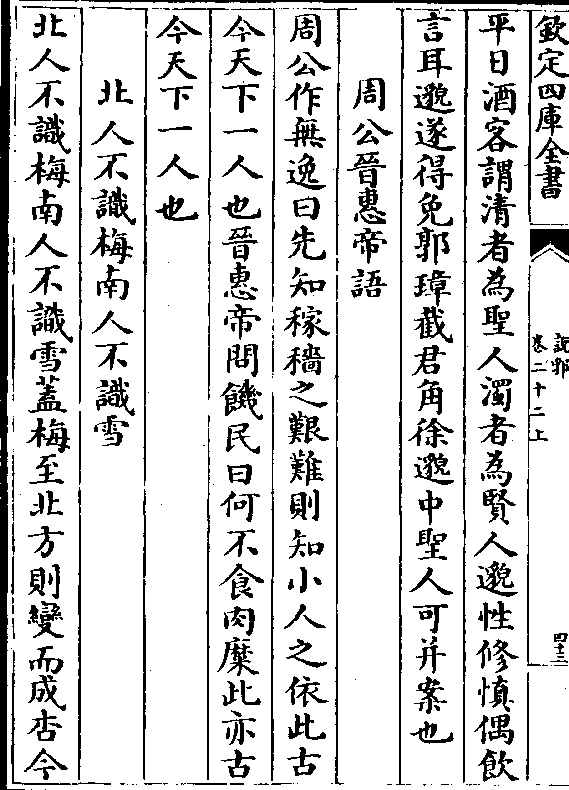 欽定四庫全書
說郛
卷二十二上
四十三
平日酒客謂清者為聖人濁者為賢人邈性修慎偶飲
言耳邈遂得免郭璋截君角徐邈中聖人可并案也
周公晉惠帝語
周公作無逸曰先知稼穡之艱難則知小人之依此古
今天下一人也晉惠帝問饑民曰何不食肉糜此亦古
今天下一人也
北人不識梅南人不識雪
北人不識梅南人不識雪蓋梅至北方則變而成杏今